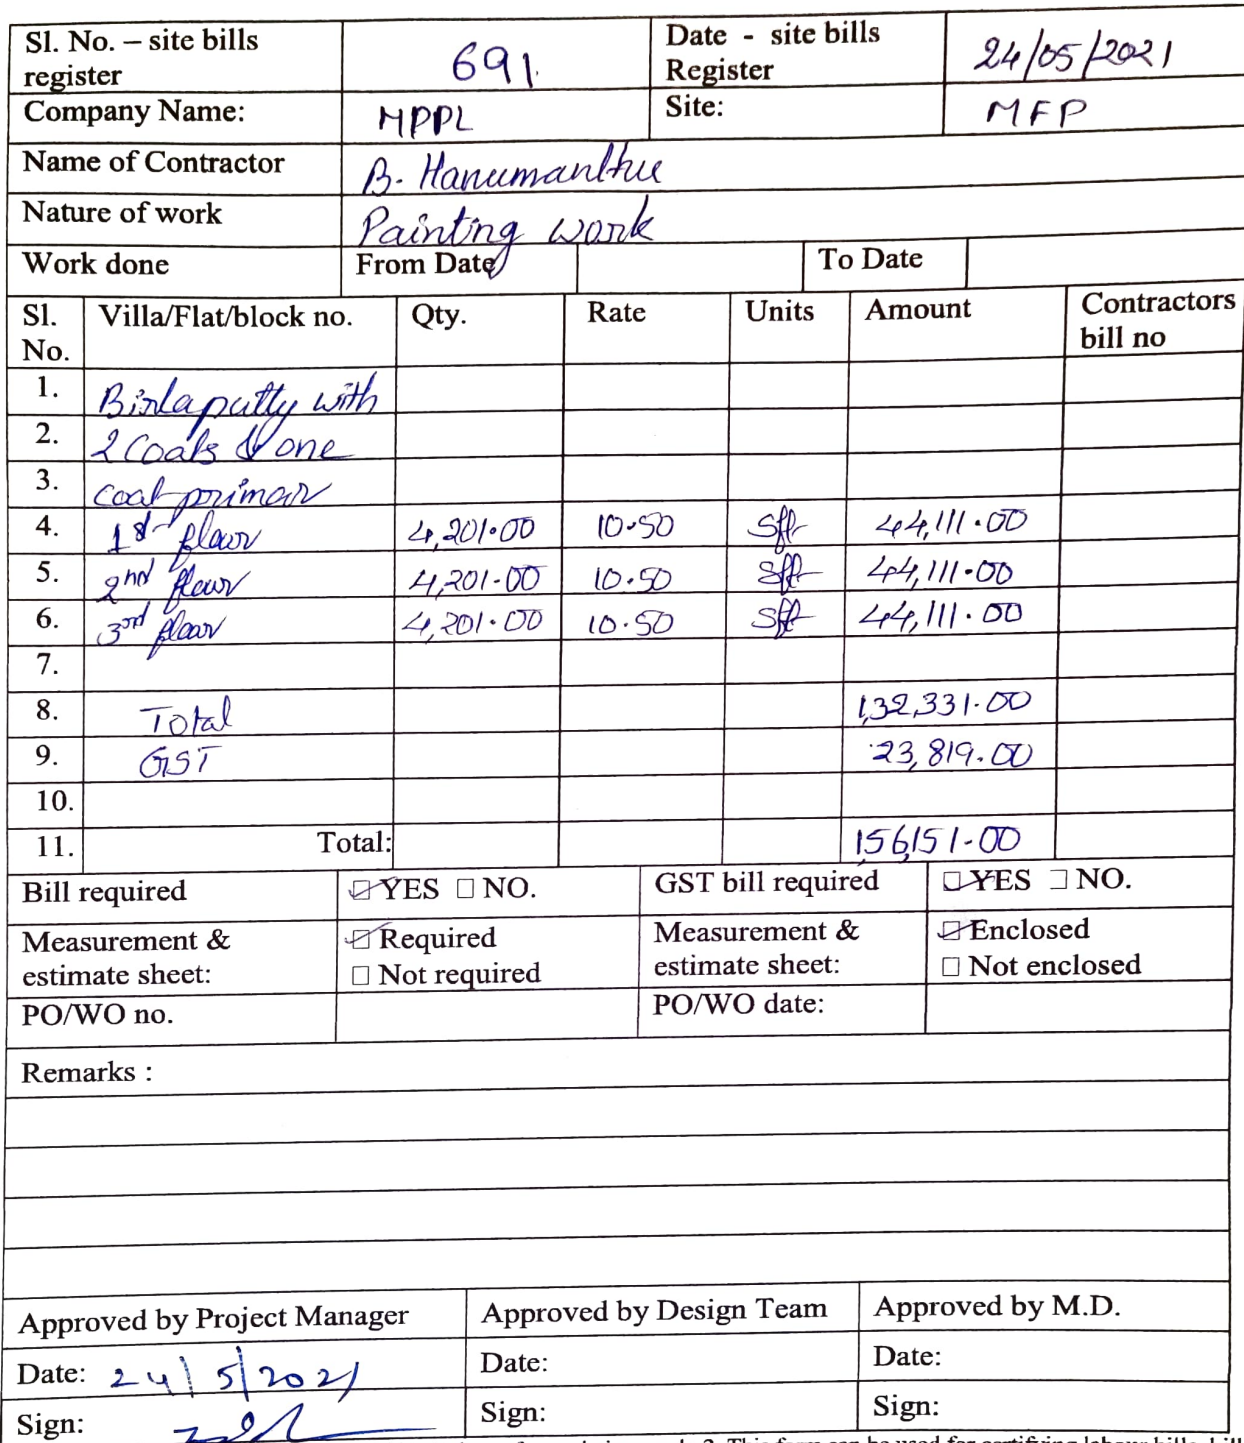 Sl. No. – site bills register 691. Date - site bills Register 24/05/2021
Company Name: MPPL Site: MFP
Name of Contractor B. Hanumanthu
Nature of work Painting work
Work done From Date To Date
Sl. No. Villa/Flat/block no. Qty. Rate Units Amount Contractors bill no
1. Birlaputty with
2. 2 Coats & one
3. coat primar
4. 1st floor 4,201.00 10.50 sft 44,111.00
5. 2nd floor 4,201.00 10.50 sft 44,111.00
6. 3rd floor 4,201.00 10.50 sft 44,111.00
7.
8. Total 1,32,331.00
9. GST 23,819.00
10.
11. Total: 1,56,151.00
Bill required ☑ YES ☐ NO. GST bill required ☑ YES ☐ NO.
Measurement & estimate sheet: ☑ Required ☐ Not required Measurement & estimate sheet: ☑ Enclosed ☐ Not enclosed
PO/WO no. PO/WO date:
Remarks :
Approved by Project Manager Approved by Design Team Approved by M.D.
Date: 24/5/2021 Date: Date:
Sign: Sign: Sign: